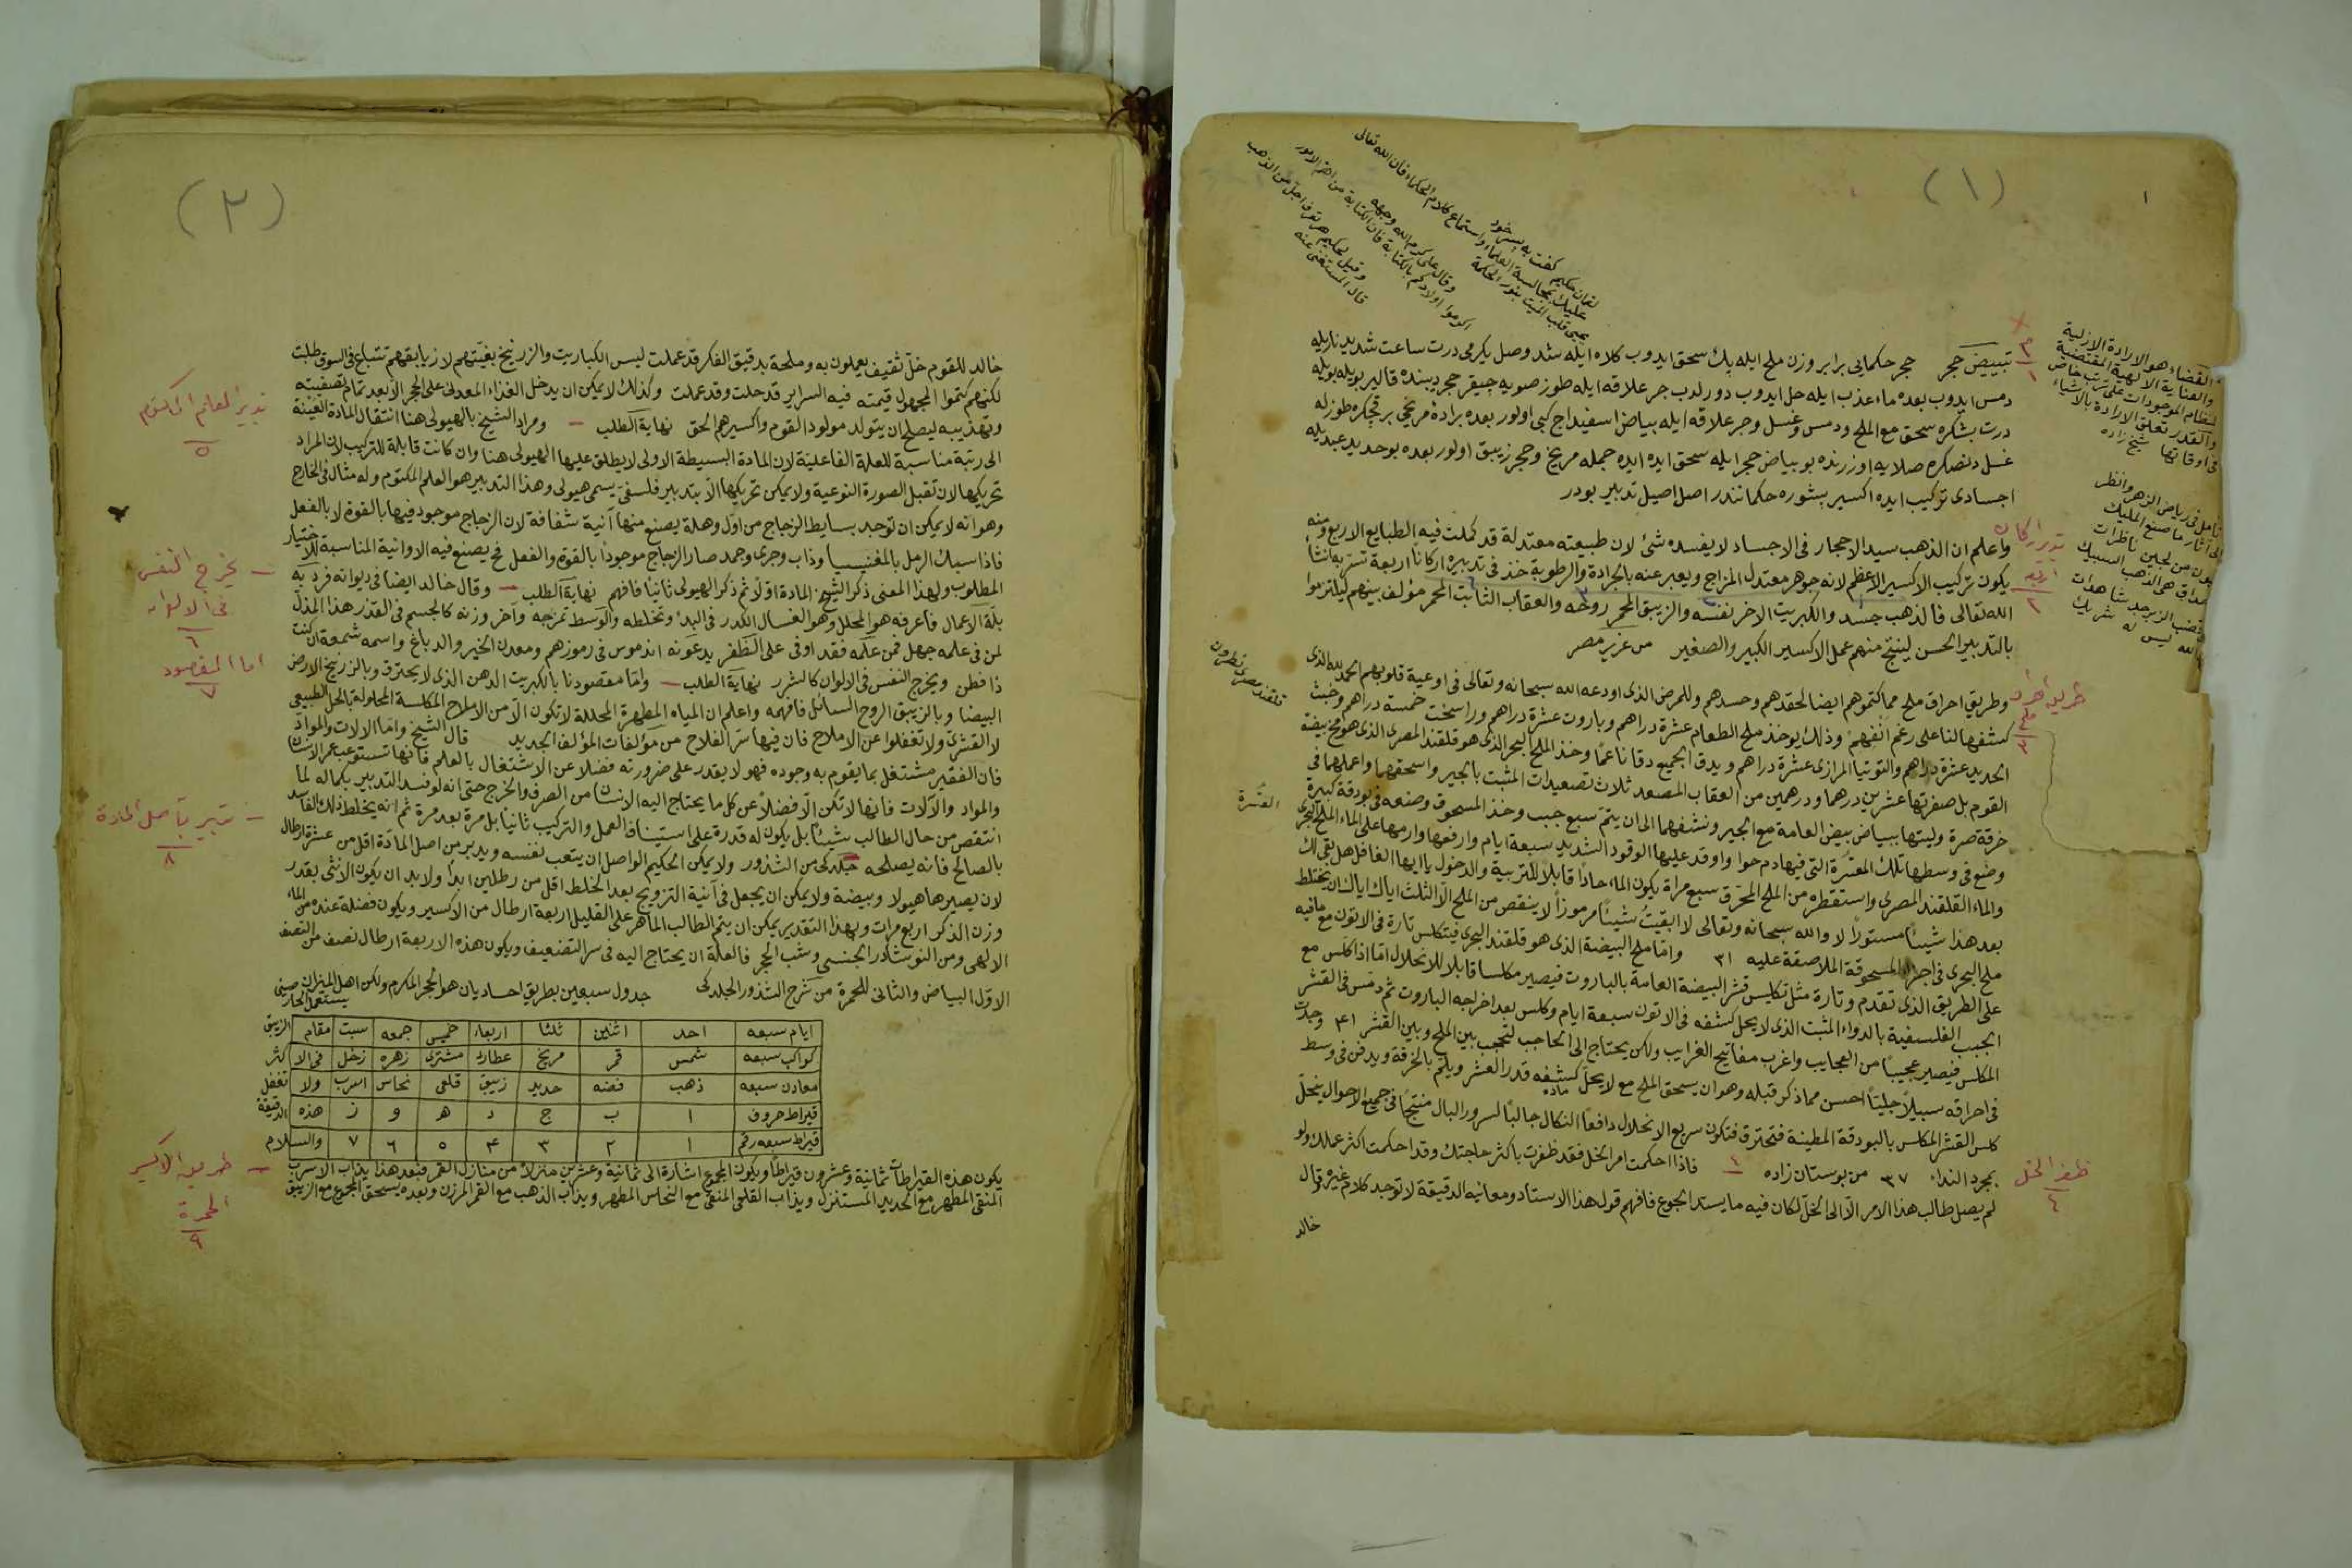 (١)
١
لقمان حكيم كفت به پسر خود
عليك بمجالسة العلماء واستماع كلام الحكماء فان الله تعالى
يحيى قلب الميت بنور الحكمة
وقال على كرم الله وجهه
اكرموا اولادكم بالكتابة فان الكتابة من اهم الامور
وقيل لحكيم هل تعرف اجل من الذهب
قال المستغنى عنه
والقضاء هو الارادة الازلية
والعناية الالهية المقتضية
لنظام الموجودات على ترتيب خاص
والقدر تعلق الارادة بالاشياء
فى اوقاتها شيخ زاده
تأمل فى رياض الزهر وانظر
الى آثار ما صنع المليك
عيون من لجين ناظرات
باحداق هى الذهب السبيك
على قضب الزبرجد شاهدات
بان الله ليس له شريك
تبييض حجر حجر حكمايى برابر وزن ملح ايله بك سحق ايدوب كلاه ايله شد وصل يكرمى درت ساعت شديد نار ايله
دمس ايدوب بعده ماء عذب ايله حل ايدوب دورلدب جر علاقه ايله طوز صويه چيقر حجر ديبنده قالير بويله بويله
درت بش كره سحق مع الملح ودمس وغسل وجر علاقه ايله بياض اسفيداج كبى اولور بعده برادۀ مريخى بر قچ كره طوزله
غسل دنصكره صلايه اوزرنده بو بياض حجر ايله سحق ايده ايده جمله مريخ وحجر زيبق اولور بعده بو حديد عبد ايله
اجسادى تركيب ايده اكسير بشوره حكمانندر اصل اصيل تدبير بودر
تدبير اركان
اربعه
٢
واعلم ان الذهب سيد الاحجار فى الاجساد لا يفسده شئ لان طبيعته معتدلة قد كملت فيه الطبايع الاربع ومنه
يكون تركيب الاكسير الاعظم لانه جوهر معتدل المزاج ويعبر عنه بالحرارة والرطوبة خذ فى تدبيره اركانا اربعة تسر به انشأ
الله تعالى فالذهب جسد والكبريت الاحمر نفسه والزيبق المحمر روحه والعقاب الثابت المحمر مؤلف بينهم كيلا تنزموا
بالتدبير الحسن لينتج منهم عمل الاكسير الكبير والصغير من عزيز مصر
طريق احراق
ملح
٣
وطريق احراق ملح مما كتموهم ايضا لحقدهم وحسدهم وللمرض الذى اودعه الله سبحانه وتعالى فى اوعية قلوبهم الحمد لله الذى
كشفها لنا على رغم انفهم وذلك يوخذ ملح الطعام عشرة دراهم وبارود عشرة دراهم وراسخت خمسة دراهم وخبث
الحديد عشرة دراهم والتوتيا المرازى عشرة دراهم ويدق الجميع دقا ناعما وخذ الملح البحر الذى هو قلقند المصرى الذى هو مح بيضة
القوم بل صفرتها عشرين درهما ودرهمين من العقاب المصعد ثلاث تصعيدات المثبت بالجير واسحقهما واعملهما فى
خرقة صرة وليتها ببياض بيض العامة مع الجير ونشفهما الى ان يتم سبع جبب وخذ المسحوق وضعه فى بودقة كبيرة
وضع فى وسطها تلك المعشرة التى فيها دم حوا واوقد عليها الوقود الشديد سبعة ايام وارفعها وارمها على الماء الملح البحر
والماء القلقند المصرى واستقطره من الملح المحرق سبع مراة يكون الماء حادا قابلا للتربية والدخول يا ايها الغافل هل بقى لك
بعد هذا شيئا مستورا لا والله سبحانه وتعالى لا ابقيت شيئا مرموزا لا ينقص من الملح الا الثلث اياك اياك ان يختلط
ملح البحرى فى اجزاء المسحوقة الملاصقة عليه ٣١ واما ملح البيضة الذى هو قلقند البحرى فيتكلس تارة فى الاتون مع مافيه
على الطريق الذى تقدم وتارة مثل تكليس قشر البيضة العامة بالبارود فيصير مكلسا قابلا للانحلال اما اذا كلس مع
الجبب الفلسفية بالدواء المثبت الذى لا يحل كشفه فى الاتون سبعة ايام وكلس بعد اخراجه البارود ثم دمس فى القشر
المكلس فيصير عجيبا من العجايب واغرب مفاتيح الغرايب ولكن يحتاج الى الحاجب لتحجب بين الملح وبين القشر ٤١ وجدت
فى احراقه سبيلا جليا احسن مما ذكر قبله وهو ان يسحق الملح مع مادة لا يحل كشفه قدر العشر ويلثم بالخرقة ويدفن فى وسط
كلس القشر المكلس بالبودقة المطينة فتحترق فتكون سريع الانحلال دافعا النكال جالبا لسرور البال منتجا فى جميع الاحوال ينحل
بمجرد النداء ٣٧ من بوستان زاده
ظفر الخل
٤
فاذا احكمت امر الخل فقد ظفرت باكثر حاجتك وقد احكمت اكثر عملك ولو
لم يصل طالب هذا الامر الا الى الخل لكان فيه ما يسد الجوع فافهم قول هذا الاستاد ومعانيه الدقيقة لا توجد كلام غيره قال
خالد
قلقند مصرى نطرون
(٢)
خالد للقوم خل ثقيف يعملون به وملحة بدقيق الفكر قد عملت ليس الكباريت والزرنيخ بغيتهم لا زيابقهم تتباع فى السوق طلبت
لكنهم كتموا المجهول قيمته فيه السراير قد حلت وقد عملت وكذلك لا يمكن ان يدخل الغذاء المعدنى على الحجر الا بعد تمام تصفيته
وتهذيبه ليصلح ان يتولد مولود القوم واكسيرهم الحق نهاية الطلب ومراد الشيخ بالهيولى هنا انتقال المادة العينة
الى رتبة مناسبة للعلة الفاعلية لان المادة البسيطة الاولى لا يطلق عليها الهيولى هنا وان كانت قابلة للتركيب لان المراد
تحريكها لان تقبل الصورة النوعية ولا يمكن تحريكها الا بتدبير فلسفى يسمى هيولى وهذا التدبير هو العلم المكتوم وله مثال فى الخارج
وهو انه لا يمكن ان توجد بسايط الزجاج من اول وهلة يصنع منها آنية شفافة لان الزجاج موجود فيها بالقوة لا بالفعل
فاذا سبك الرمل بالمغنيسيا وذاب وجرى وجمد صار الزجاج موجودا بالقوة والفعل فح يصنع فيه الاوانية المناسبة للاختيار
المطلوب ولهذا المعنى ذكر الشيخ المادة اولا ثم ذكر الهيولى ثانيا فافهم نهاية الطلب وقال خالد ايضا فى ديوانه فرد به
بلة الاعمال فاعرفه هو المحلل وهو الغسال الكدر فى البدأ وتخلطه والوسط تمزجه وآخر وزنه كالجسم فى القدر هذا المذل
لمن فى علمه جهل فمن علمه فقد اوفى على الظفر يدعونه اندموس فى رموزهم ومعدن الخير والدباغ واسمه شمعة ان كنت
ذا فطن ويخرج النفس فى الالوان كالشرر نهاية الطلب واما مقصودنا بالكبريت الدهن الذى لا يحترق وبالزرنيخ الارض
البيضا وبالزيبق الروح السائل فافهمه واعلم ان المياه المطهرة المحللة لا تكون الا من الاملاح المكلسة المحلولة بالحل الطبيعى
لا القشرى ولا تغفلوا عن الاملاح فان فيها سر الفلاح من مؤلفات المؤلف الجديد قال الشيخ واما الالات والمواد
فان الفقير مشتغل بما يقوم به وجوده فهو لا يقدر على ضرورته فضلا عن الاشتغال بالعلم فانها تستوعب عمر الانسان
والمواد والآلات فانها لا تكن الا فضلا عن كل ما يحتاج اليه الانسان من الصرف والخرج حتى انه لو فسد التدبير بكماله لما
انتقص من حال الطالب شيئا بل يكون له قدرة على استيناف العمل والتركيب ثانيا بل مرة بعد مرة ثم انه يخلط ذلك الفاسد
بالصالح فانه يصلحه جلدكى من الشذور ولا يمكن الحكيم الواصل ان يتعب نفسه ويدبر من اصل المادة اقل من عشرة ارطال
لان يصيرها هيولا وبيضة ولا يمكن ان يجعل فى آنية التزويج بعد الخلط اقل من رطلين ابدا ولا بد ان يكون الانثى بقدر
وزن الذكر اربع مرات وبهذا التقدير يمكن ان يتم الطالب الماهر على القليل اربعة ارطال من الاكسير ويكون فضلة عنده من الماء
الالهى ومن النوشادر الجنسى وشب الحجر فالعلة ان يحتاج اليه فى سر التضعيف ويكون هذه الاربعة ارطال نصف من النصف
الاول البياض والثانى للحمرة من شرح الشذور الجلدكى جدول سبعين بطريق احاديان هو الحجر المكرم ولكن اهل الميزان
ايام سبعه احد اثنين ثلثا اربعاء خميس جمعه سبت مقام الزيبق
كواكب سبعه شمس قمر مريخ عطارد مشترى زهره زحل فى الا كثر
معادن سبعه ذهب فضه حديد زيبق قلعى نحاس اسرب ولا تغفل
قيراط حروف ا ب ج د ه و ز هذه الدقيقة
قيراط سبعه رقم ١ ٢ ٣ ۴ ٥ ٦ ٧ والسلام
يكون هذه القيراطات ثمانية وعشرون قيراطا ويكون المجموع اشارة الى ثمانية وعشرين منزلا من منازل القمر فبعد هذا يذاب الاسرب
المنقى المطهر مع الحديد المستنزل ويذاب القلعى المنقى مع النحاس المطهر ويذاب الذهب مع القمر المرزن وبعده يسحق المجموع مع الزيبق
تدبير العلم المكتوم
٥
يخرج النفس
فى الالوان
٦
اما المقصود
٧
تدبير اصل المادة
٨
طريق الاكسير
الحمرة
٩